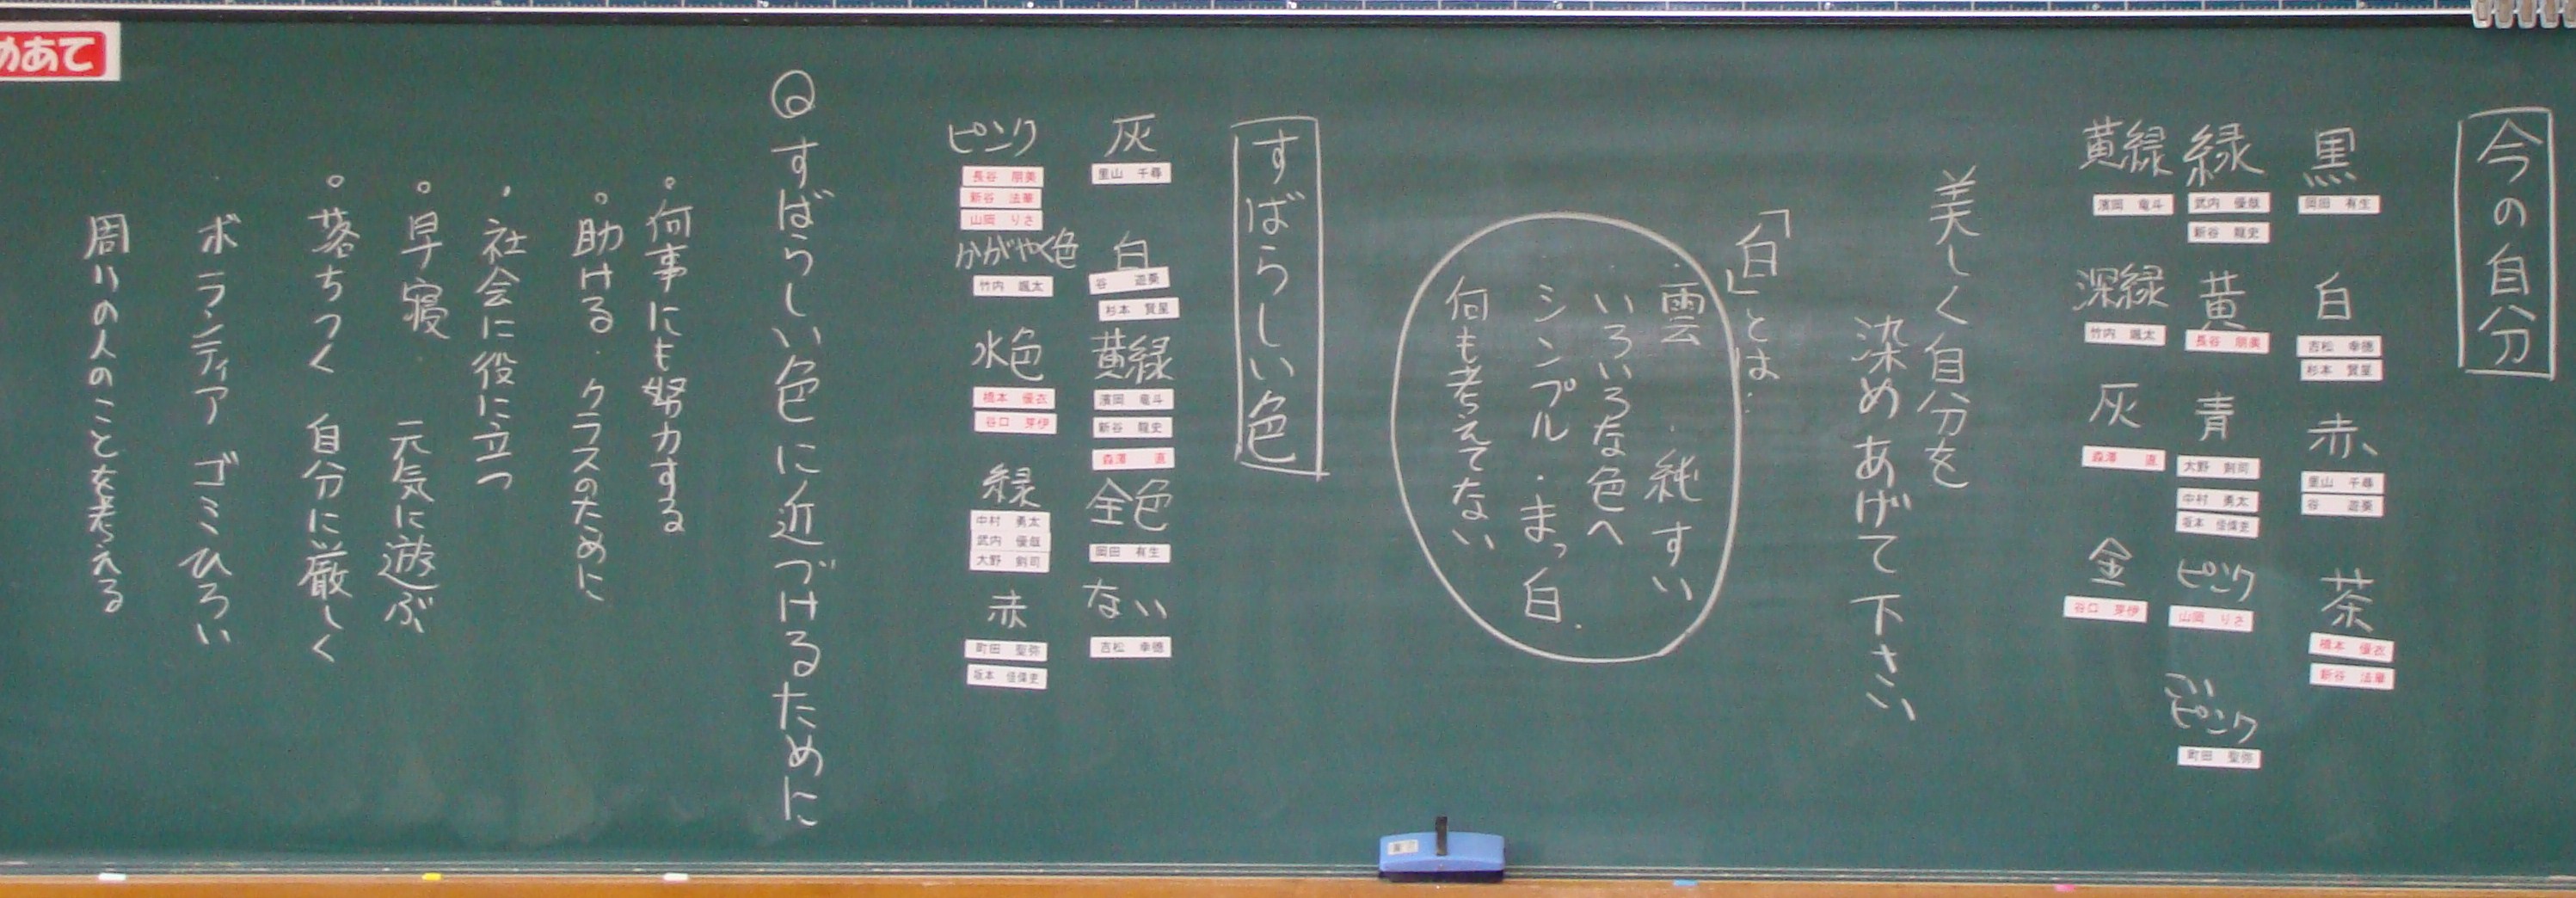 今の自分
黒
岡田 有生
白
吉松 幸徳
杉本 賢星
赤
里山 千尋
谷 遊菜
茶
橋本 優衣
新谷 法華
緑
武内 優哉
新谷 龍史
黄
長谷 朋美
青
大野 剣司
中村 勇太
坂本
ピンク
山岡 りさ
こいピンク
町田 聖弥
黄緑
濱岡 竜斗
深緑
竹内 颯太
灰
森澤 直
金
谷口 芽伊
美しく自分を
染めあげて下さい
「白」とは…
雲・純すい
いろいろな色へ
シンプル・まっ白.
何も考えてない
すばらしい色
灰
里山 千尋
白
谷 遊菜
杉本 賢星
黄緑
濱岡 竜斗
新谷 龍史
森澤 直
全色
岡田 有生
ない
吉松 幸徳
ピンク
長谷 朋美
新谷 法華
山岡 りさ
かがやく色
竹内 颯太
水色
橋本 優衣
谷口 芽伊
緑
中村 勇太
武内 優哉
大野 剣司
赤
町田 聖弥
坂本
Qすばらしい色に近づけるために
。何事にも努力する
。助ける.クラスのために
・社会に役に立つ
。早寝. 元気に遊ぶ
。落ちつく 自分に厳しく
ボランティア ゴミひろい
周りの人のことを考える
めあて